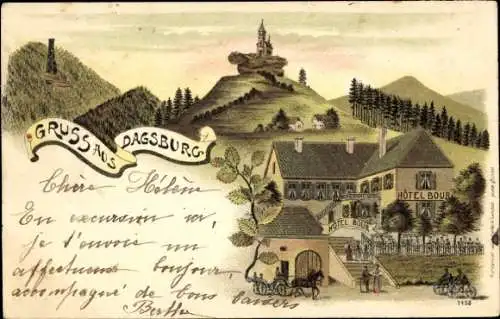 GRUSS AUS DAGSBURG
HÔTEL BOUR
HÔTEL BOUR
Chère Hélène
En excursion ici,
je t'envoie un
affectueux bonjour,
accompagné de bons baisers
Berthe
1458